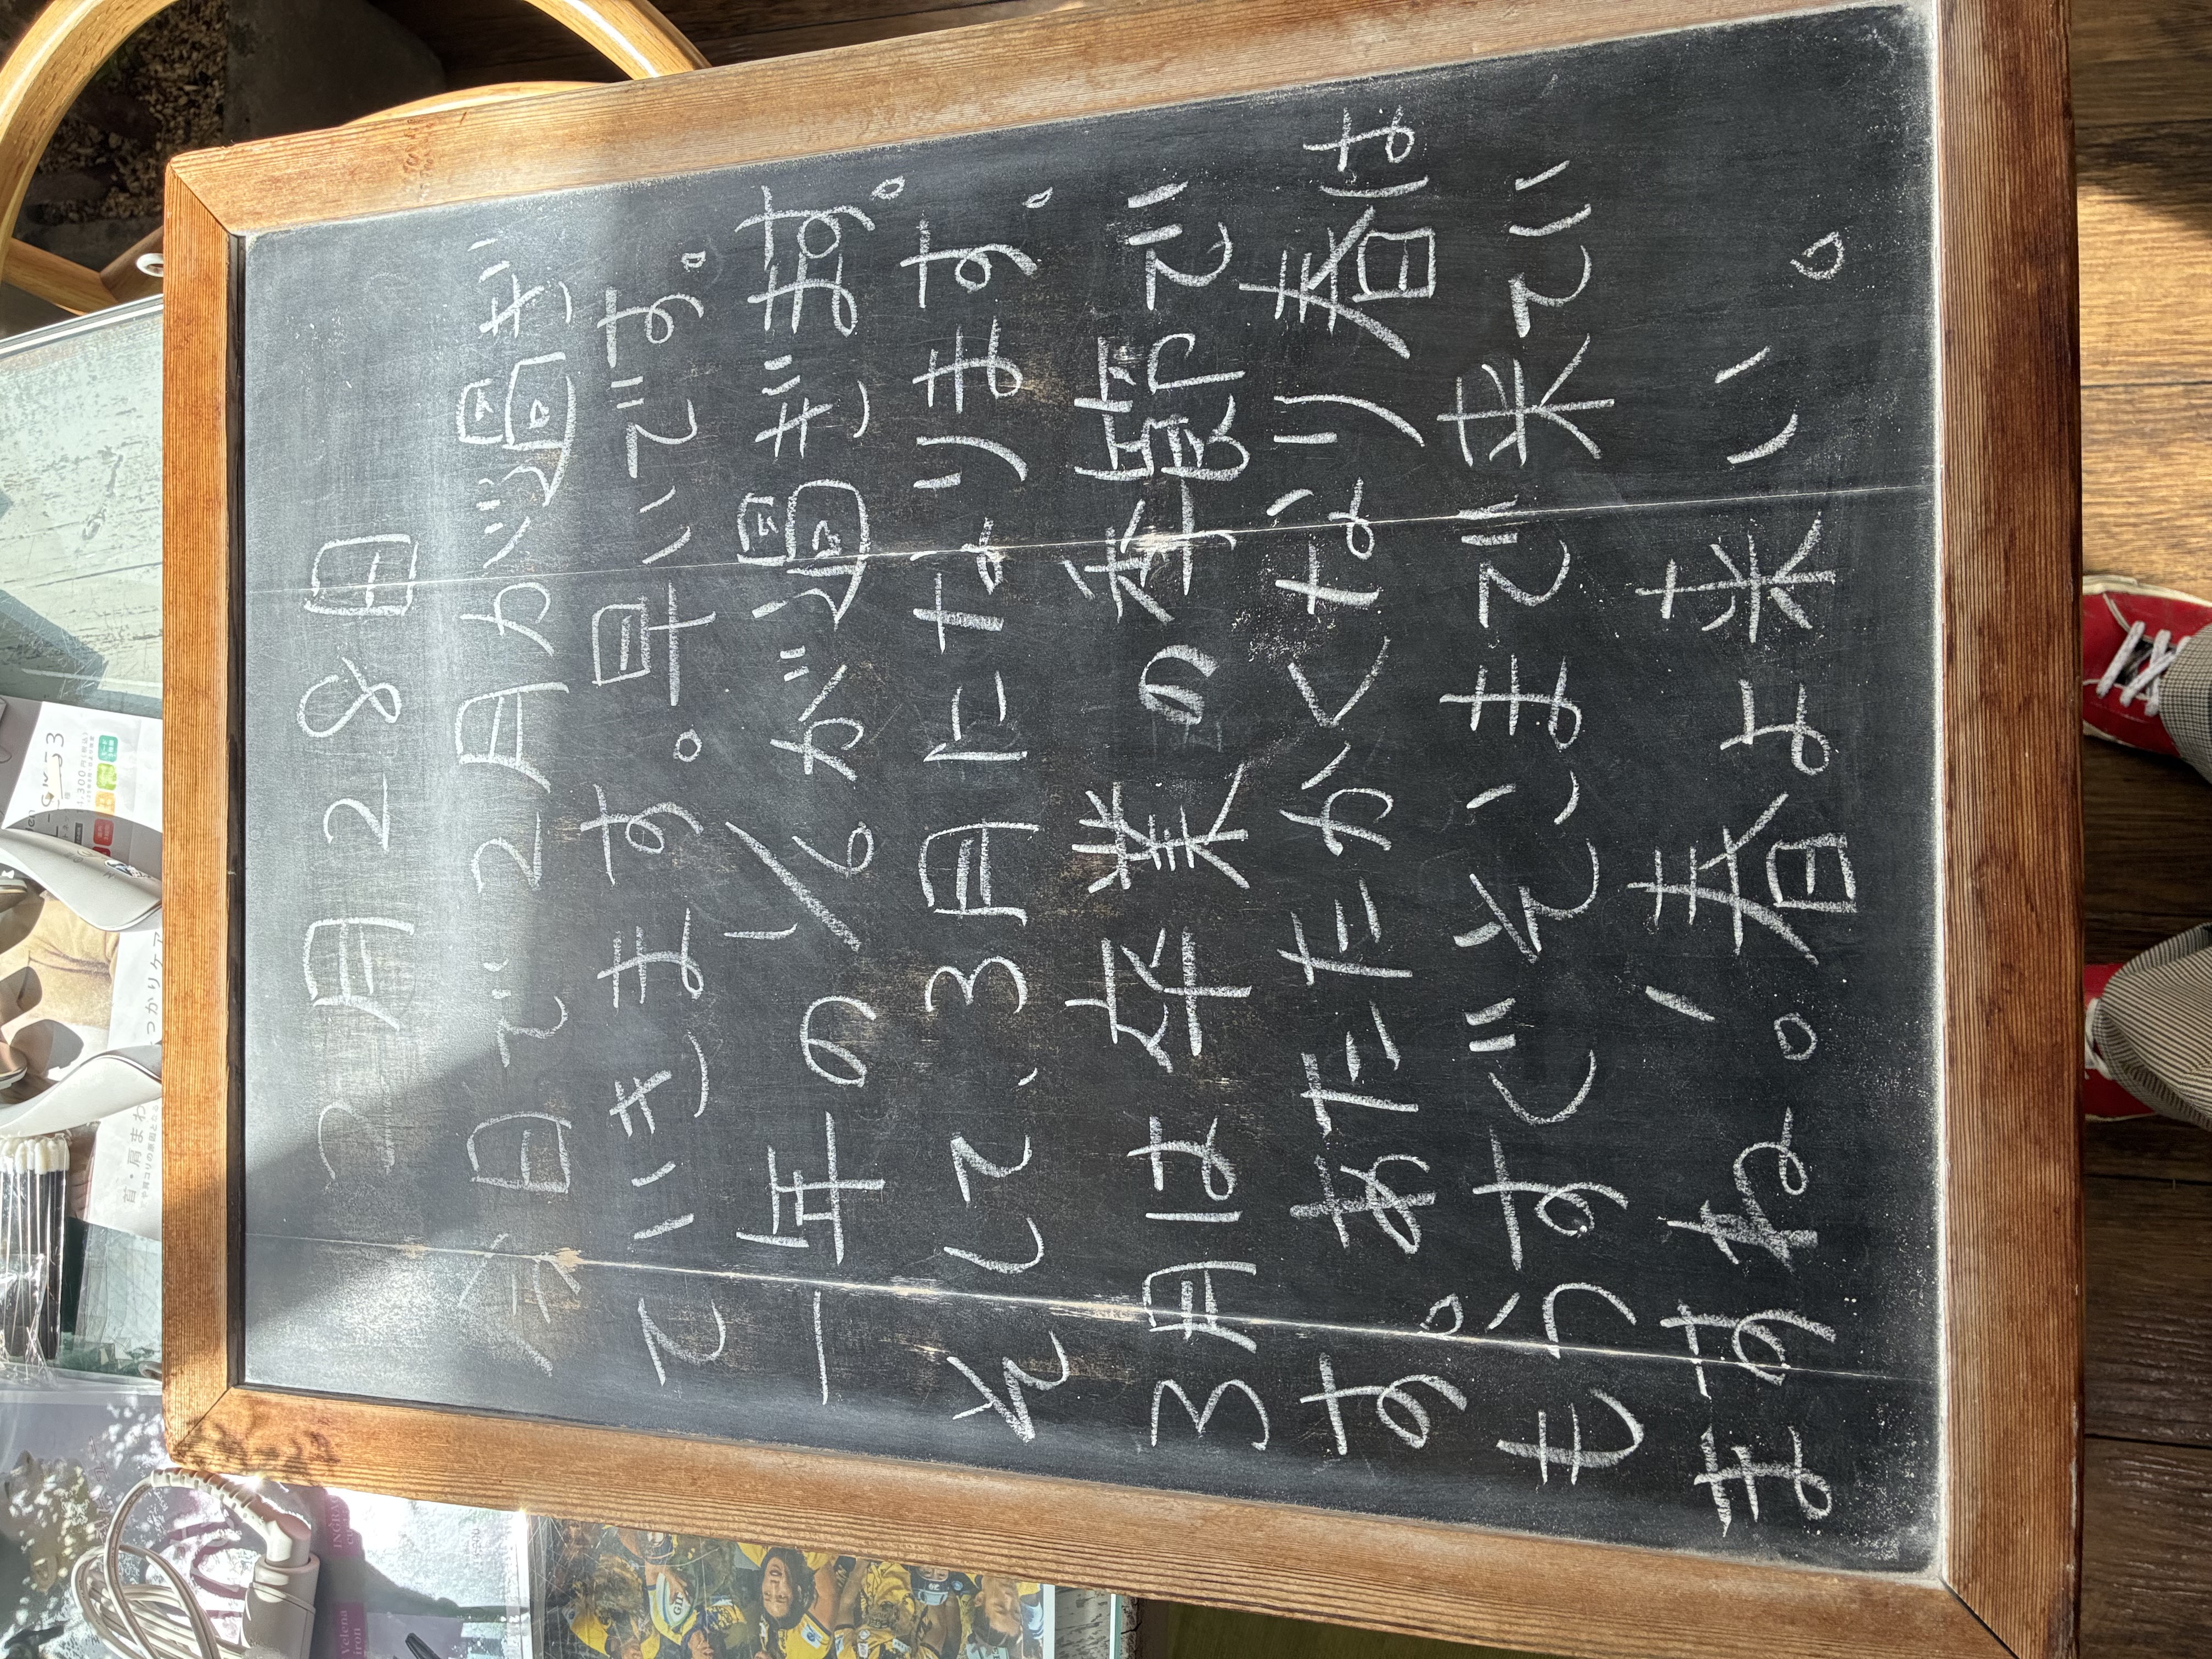 2月28日
今日で2月が過ぎ
ていきます。早いです。
一年の1/6が過ぎます。
そして、3月になります。
3月は卒業の季節で
す。あたたかくなり春は
もうすぐそこまで来てい
ますね。春よ来い。
っかりケア
首・肩まわ